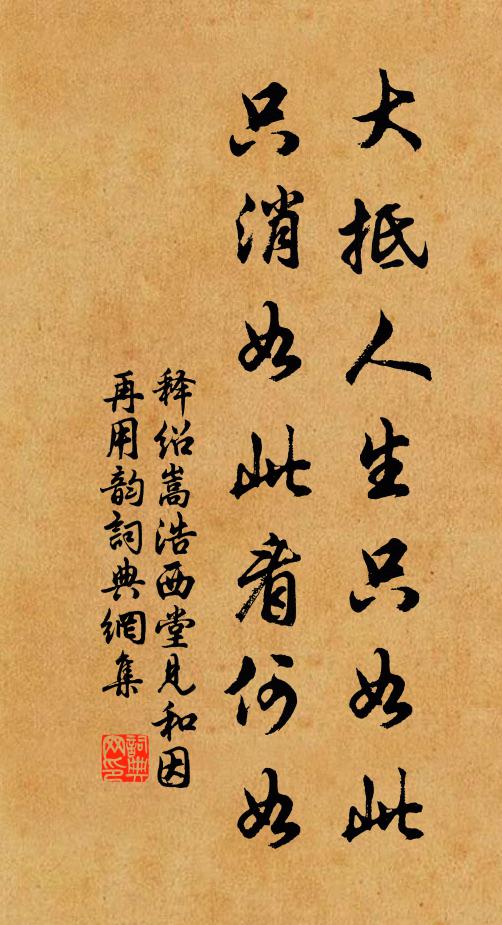 大抵人生只如此
只消如此看何如
释绍嵩浩西堂见和因
再用韵詞典網集
詞典网印